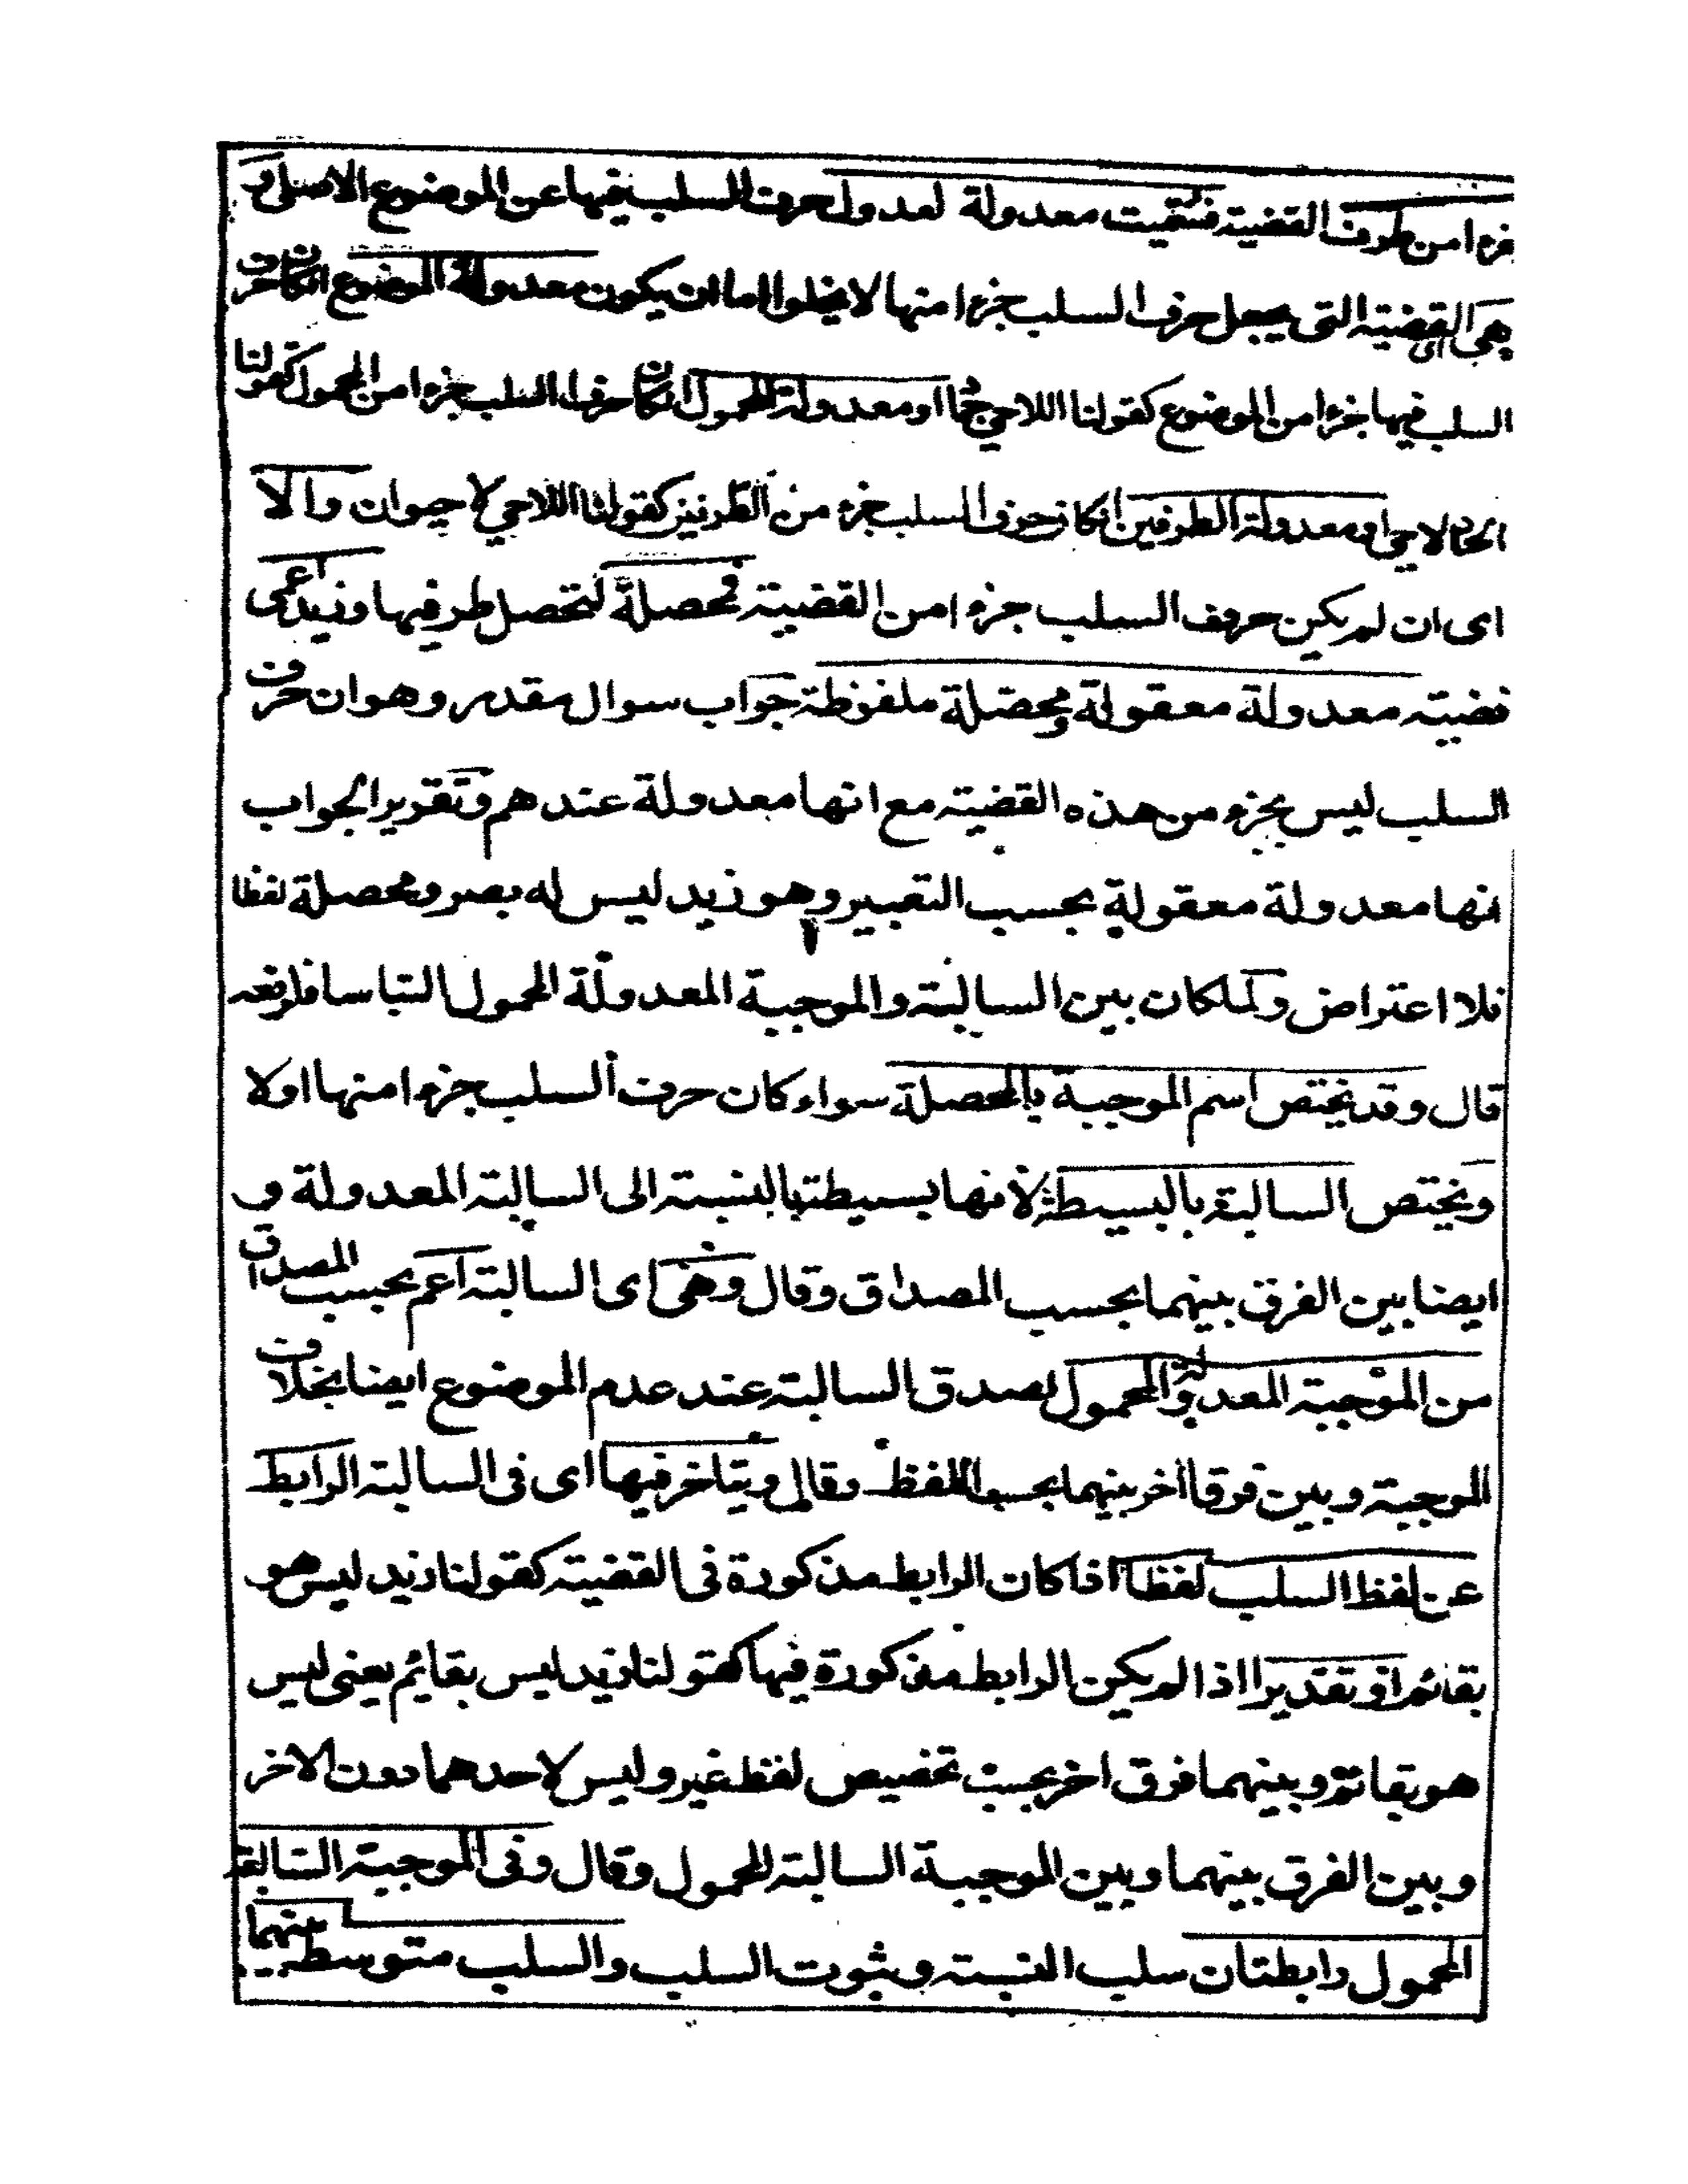 جزءا من طرف القضية فسميت معدولة لعدول حرف السلب فيها عن الموضوع الاصلى و
هى اى القضية التى يجعل حرف السلب جزءا منها لا يخلوا اما ان يكون معدولة الموضوع انكان حرف
السلب فيها جزءا من الموضوع كقولنا اللاحى جماد او معدولة المحمول انكان حرف السلب جزءا من المحمول كقولنا
الجماد لاحى او معدولة الطرفين انكان حرف السلب جزء من الطرفين كقولنا اللاحى لا حيوان والا
اى ان لم يكن حرف السلب جزءا من القضية فمحصلة لتحصل طرفيها وزيد اعمى
قضية معدولة معقولة ومحصلة ملفوظة جواب سوال مقدر وهو ان حرف
السلب ليس بجزء من هذه القضية مع انها معدولة عندهم وتقرير الجواب
انها معدولة معقولة بحسب التعبير وهو زيد ليس له بصر ومحصلة لفظا
فلا اعتراض ولما كان بين السالبة والموجبة المعدولة المحمول التباسا فرفعه
قال وقد يختص اسم الموجبة بالمحصلة سواء كان حرف السلب جزءا منها اولا
ويختص السالبة بالبسيطة لانها بسيطة بالنسبة الى السالبة المعدولة و
ايضا بين الفرق بينهما بحسب المصداق وقال وهى اى السالبة اعم بحسب المصداق
من الموجبة المعدولة المحمول لصدق السالبة عند عدم الموضوع ايضا بخلاف
الموجبة وبين فرقا اخر بينهما بحسب اللفظ وقال ويتاخر فيها اى فى السالبة الرابط
عن لفظ السلب لفظا اذا كان الرابط مذكورة فى القضية كقولنا زيد ليس هو
بقائم او تقديرا اذا لم يكن الرابط مذكورة فيها كقولنا زيد ليس بقايم يعنى ليس
هو بقائم وبينهما فرق اخر بحسب تخصيص لفظ غير وليس لاحدهما دون الاخر
وبين الفرق بينهما وبين الموجبة السالبة المحمول وقال وفى الموجبة السالبة
المحمول رابطتان سلب النسبة وثبوت السلب والسلب متوسط بينهما